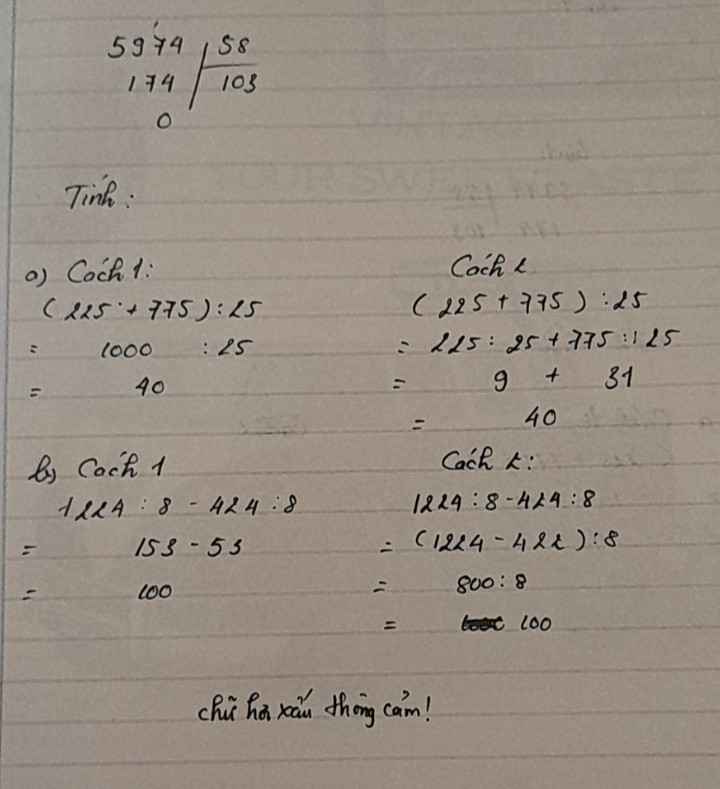 5974 58
174 103
0
Tính:
a) Cách 1:
(225 + 775) : 25
= 1000 : 25
= 40
Cách 2
(225 + 775) : 25
= 225 : 25 + 775 : 25
= 9 + 31
= 40
b) Cách 1
1224 : 8 - 424 : 8
= 153 - 53
= 100
Cách 2:
1224 : 8 - 424 : 8
= (1224 - 422) : 8
= 800 : 8
= 100
chữ hơi xấu thông cảm!